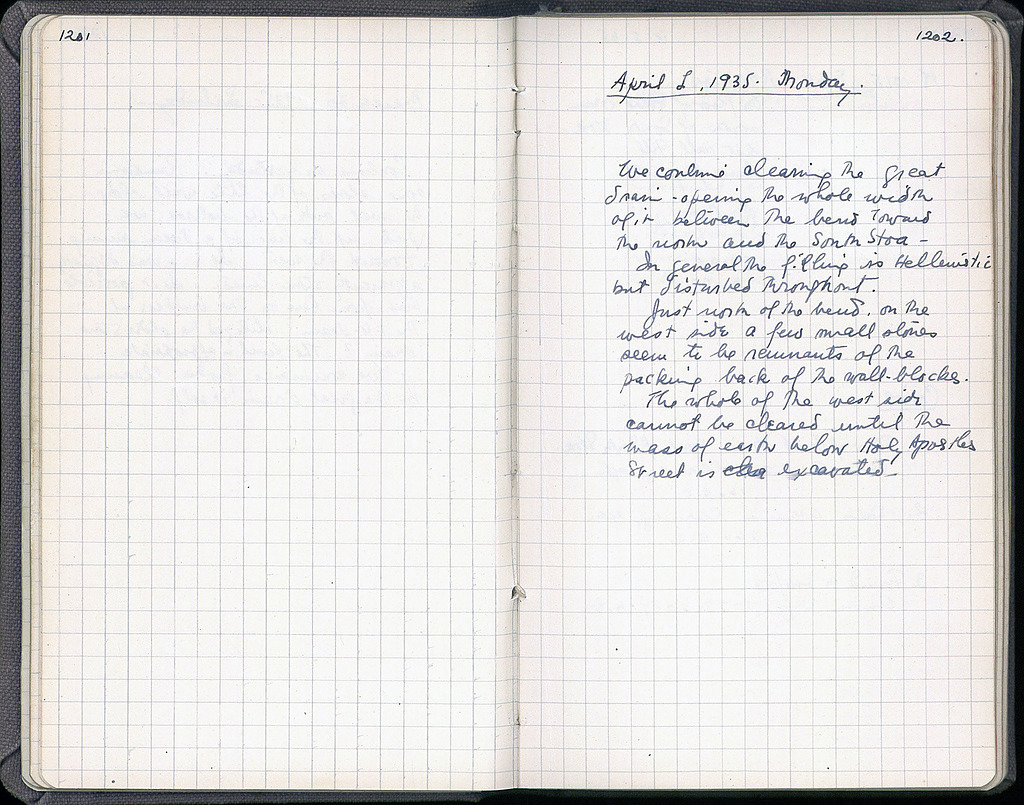 1201
1202.
April 1, 1935. Monday.
We continue cleaning the great
drain - opening the whole width
of it between the bend toward
the north and the South Stoa -
In general the filling is Hellenistic
but disturbed throughout.
Just north of the bend, on the
west side a few small stones
seem to be remnants of the
packing back of the wall-blocks.
The whole of the west side
cannot be cleared until the
mass of earth below Holy Apostles
Street is excavated